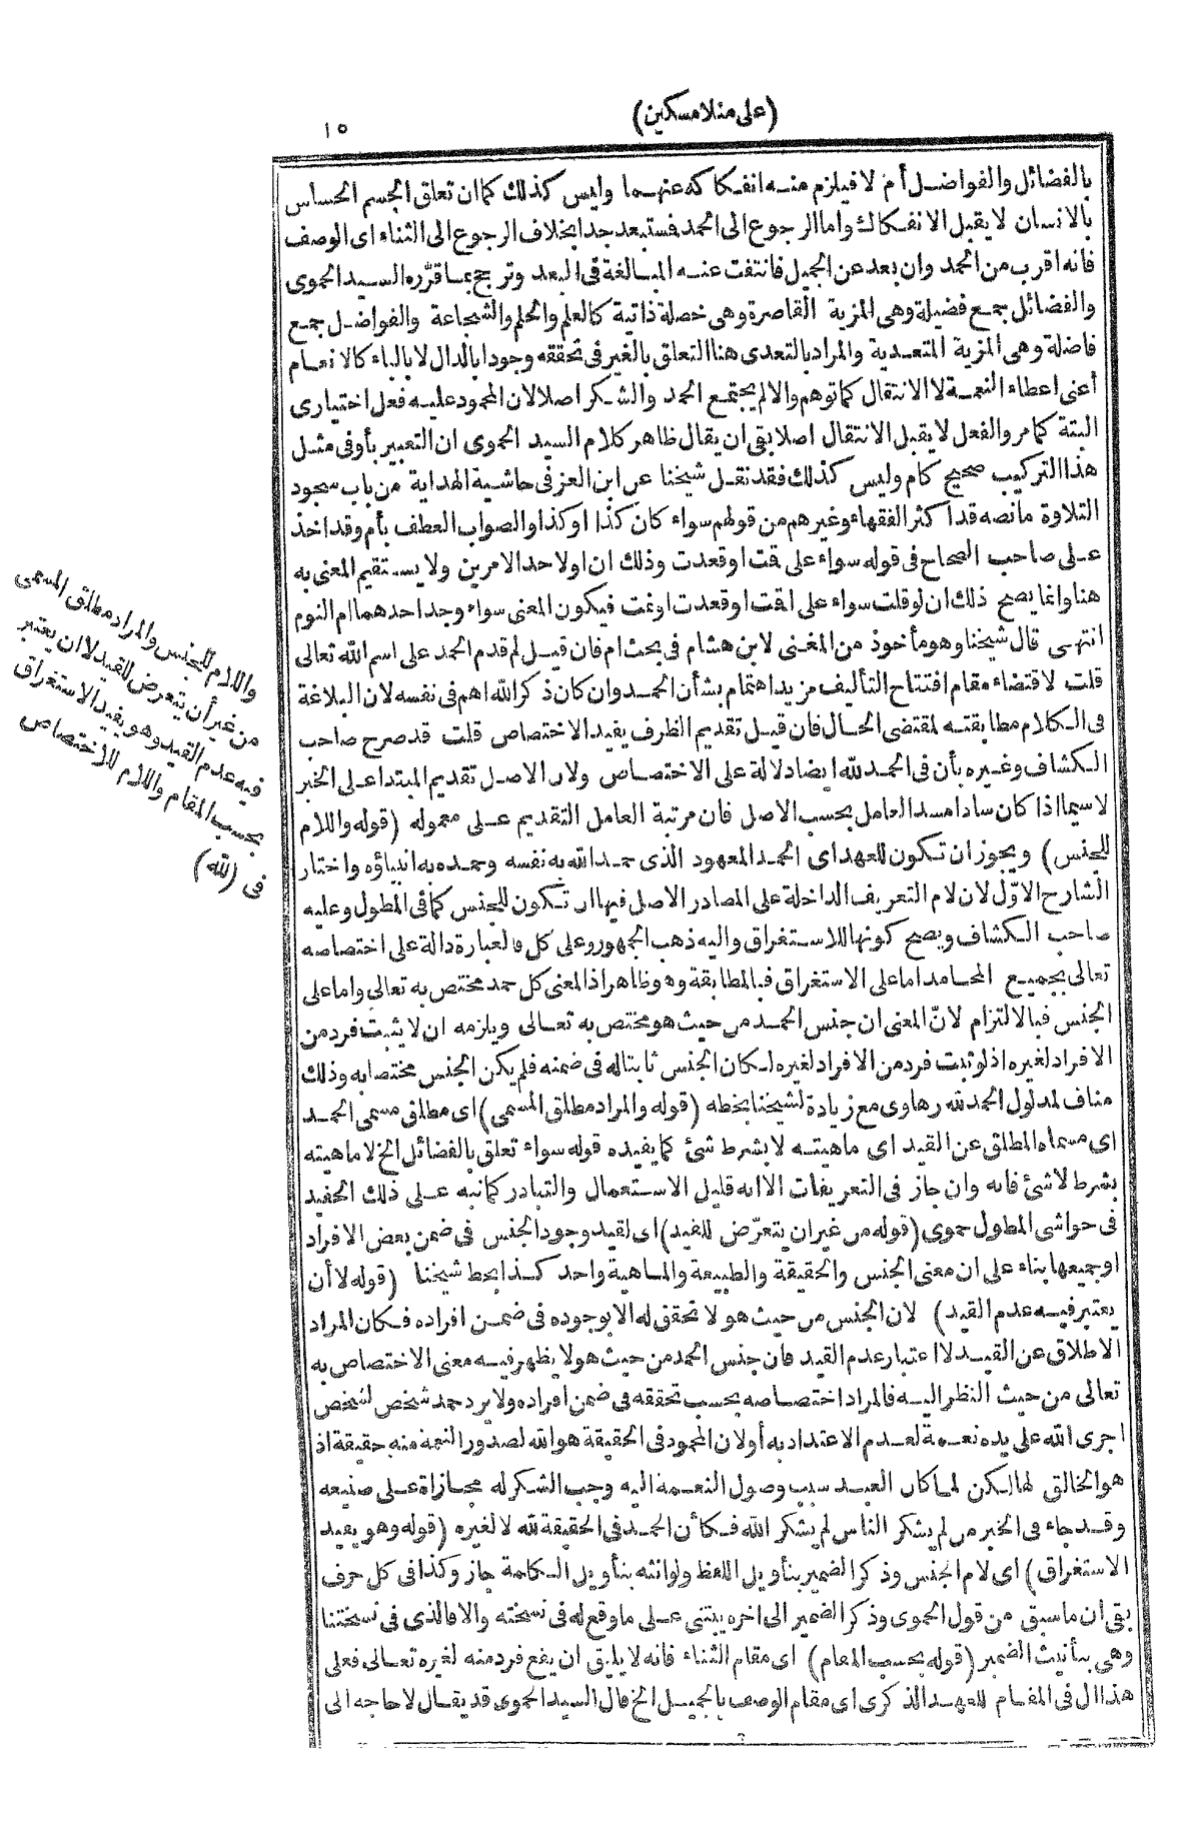 (على منلا مسكين)
١٥
بالفضائل والفواضل أم لا فيلزم منه انفكاكه عنهما وليس كذلك كما ان تعلق الجسم الحساس
بالانسان لا يقبل الانفكاك واما الرجوع الى الحمد فستبعد جدا بخلاف الرجوع الى الثناء اى الوصف
فانه اقرب من الحمد وان بعد عن الجميل فانتفت عنه المبالغة فى البعد وترجح بما قرّره السيد الحموى
والفضائل جمع فضيلة وهى المزية القاصرة وهى خصلة ذاتية كالعلم والحلم والشجاعة والفواضل جمع
فاضلة وهى المزية المتعدية والمراد بالتعدى هنا التعلق بالغير فى تحققه وجودا بالدال لا بالباء كالانعام
أعنى اعطاء النعمة لا الانتقال كما توهم والا لم يجتمع الحمد والشكر اصلا لان المحمود عليه فعل اختيارى
البتة كما مر والفعل لا يقبل الانتقال اصلا بقى ان يقال ظاهر كلام السيد الحموى ان التعبير بأو فى مثل
هذا التركيب صحيح كام وليس كذلك فقد نقل شيخنا عن ابن العز فى حاشية الهداية من باب سجود
التلاوة ما نصه قد اكثر الفقهاء وغيرهم من قولهم سواء كان كذا او كذا والصواب العطف بأم وقد اخذ
على صاحب الصحاح فى قوله سواء على قت او قعدت وذلك ان او لاحد الامرين ولا يستقيم المعنى به
هنا وانما يصح ذلك ان لو قلت سواء على اقت او قعدت او نمت فيكون المعنى سواء وجد احدهما ام النوم
انتهى قال شيخنا وهو مأخوذ من المغنى لابن هشام فى بحث ام فان قيل لم قدم الحمد على اسم الله تعالى
قلت لاقتضاء مقام افتتاح التأليف مزيد اهتمام بشأن الحمد وان كان ذكر الله اهم فى نفسه لان البلاغة
فى الكلام مطابقته لمقتضى الحال فان قيل تقديم الظرف يفيد الاختصاص قلت قد صرح صاحب
الكشاف وغيره بأن فى الحمد لله ايضا دلالة على الاختصاص ولان الاصل تقديم المبتدا على الخبر
لا سيما اذا كان سادا مسد العامل بحسب الاصل فان مرتبة العامل التقديم على معموله (قوله واللام
للجنس) ويجوز ان تكون للعهد اى الحمد المعهود الذى حمد الله به نفسه وحمده به انبياؤه واختار
الشارح الاوّل لان لام التعريف الداخلة على المصادر الاصل فيها ان تكون للجنس كما فى المطول وعليه
صاحب الكشاف ويصح كونها للاستغراق واليه ذهب الجمهور وعلى كل فالعبارة دالة على اختصاصه
تعالى بجميع المحامد اما على الاستغراق فبالمطابقة وهو ظاهر اذ المعنى كل حمد مختص به تعالى واما على
الجنس فبالالتزام لانّ المعنى ان جنس الحمد من حيث هو مختص به تعالى ويلزمه ان لا يثبت فرد من
الافراد لغيره اذ لو ثبت فرد من الافراد لغيره لكان الجنس ثابتا له فى ضمنه فلم يكن الجنس مختصا به وذلك
مناف لمدلول الحمد لله رهاوى مع زيادة لشيخنا بخطه (قوله والمراد مطلق المسمى) اى مطلق مسمى الحمد
اى مسماه المطلق عن القيد اى ماهيته لا بشرط شئ كما يفيده قوله سواء تعلق بالفضائل الخ لا ماهيته
بشرط لا شئ فانه وان جاز فى التعريفات الا انه قليل الاستعمال والتبادر كما نبه على ذلك الحفيد
فى حواشى المطول حموى (قوله من غير ان يتعرّض للقيد) اى لقيد وجود الجنس فى ضمن بعض الافراد
او جميعها بناء على ان معنى الجنس والحقيقة والطبيعة والماهية واحد كذا بخط شيخنا (قوله لا أن
يعتبر فيه عدم القيد) لان الجنس من حيث هو لا تحقق له الا بوجوده فى ضمن افراده فكان المراد
الاطلاق عن القيد لا اعتبار عدم القيد فان جنس الحمد من حيث هو لا يظهر فيه معنى الاختصاص به
تعالى من حيث النظر اليه فالمراد اختصاصه بحسب تحققه فى ضمن افراده ولا يرد حمد شخص لشخص
اجرى الله على يده نعمة لعدم الاعتداد به أو لان المحمود فى الحقيقة هو الله لصدور النعمة منه حقيقة اذ
هو الخالق لها لكن لما كان العبد سبب وصول النعمة اليه وجب الشكر له مجازاة على صنيعه
وقد جاء فى الخبر من لم يشكر الناس لم يشكر الله فكأن الحمد فى الحقيقة لله لا لغيره (قوله وهو يفيد
الاستغراق) اى لام الجنس وذكر الضمير بتأويل اللفظ ولو انثه بتأويل الكلمة جاز وكذا فى كل حرف
بقى ان ما سبق من قول الحموى وذكر الضمير الى اخره يبتنى على ما وقع له فى نسخته والا فالذى فى نسختنا
وهى بتأنيث الضمير (قوله بحسب المقام) اى مقام الثناء فانه لا يليق ان يقع فرد منه لغيره تعالى فعلى
هذا ال فى المقام للعهد الذكرى اى مقام الوصف بالجميل الخ قال السيد الحموى قد يقال لا حاجه الى
واللام للجنس والمراد مطلق المسمى
من غير أن يتعرض للقيد لا ان يعتبر
فيه عدم القيد وهو يفيد الاستغراق
بحسب المقام واللام للاختصاص
فى (لله)